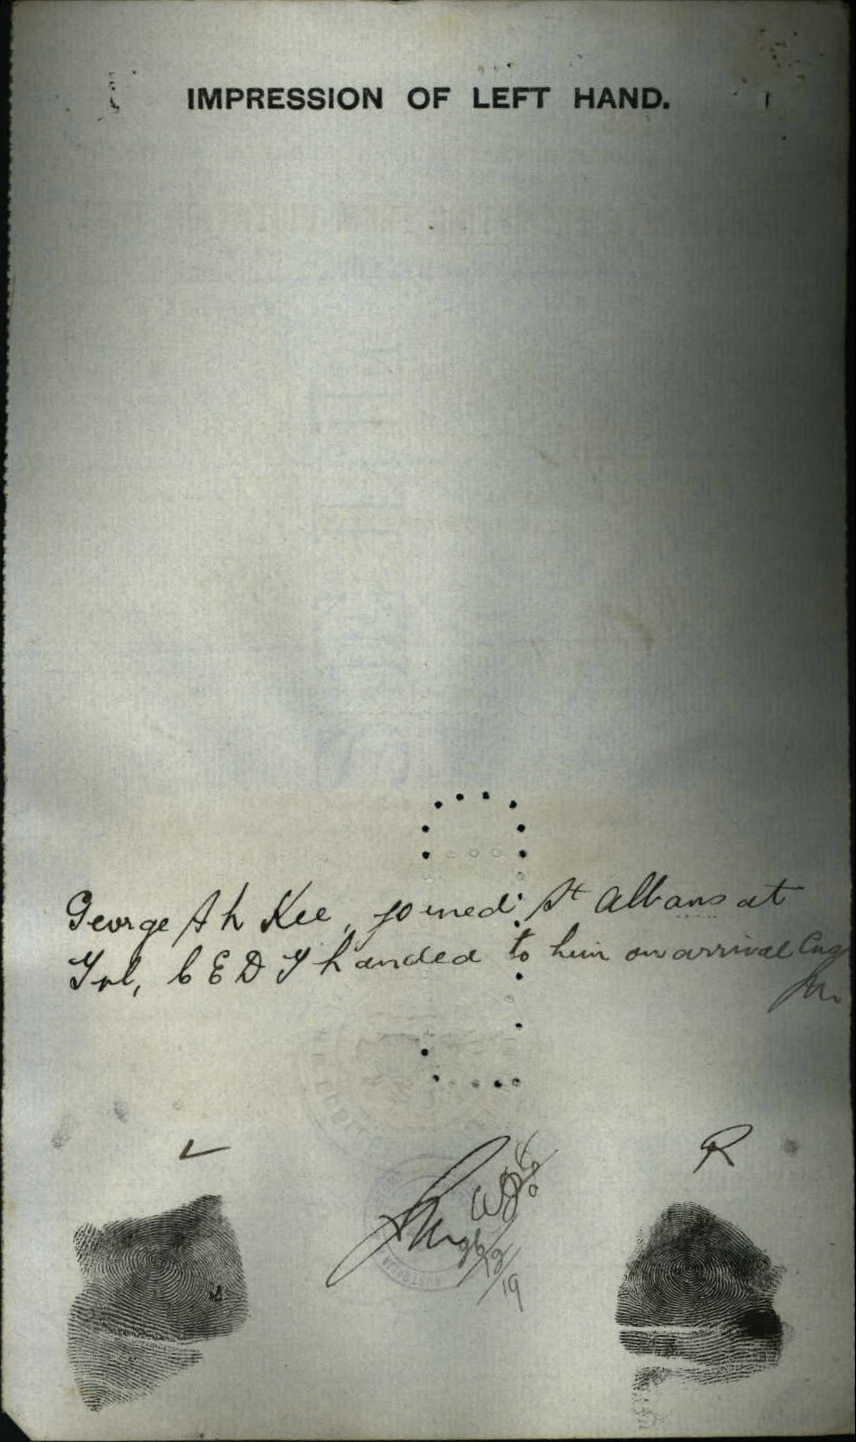 IMPRESSION OF LEFT HAND.
George Ah Kee, joined St Albans at
T'vl, C E D T handed to him on arrival
L
R
26/12/19